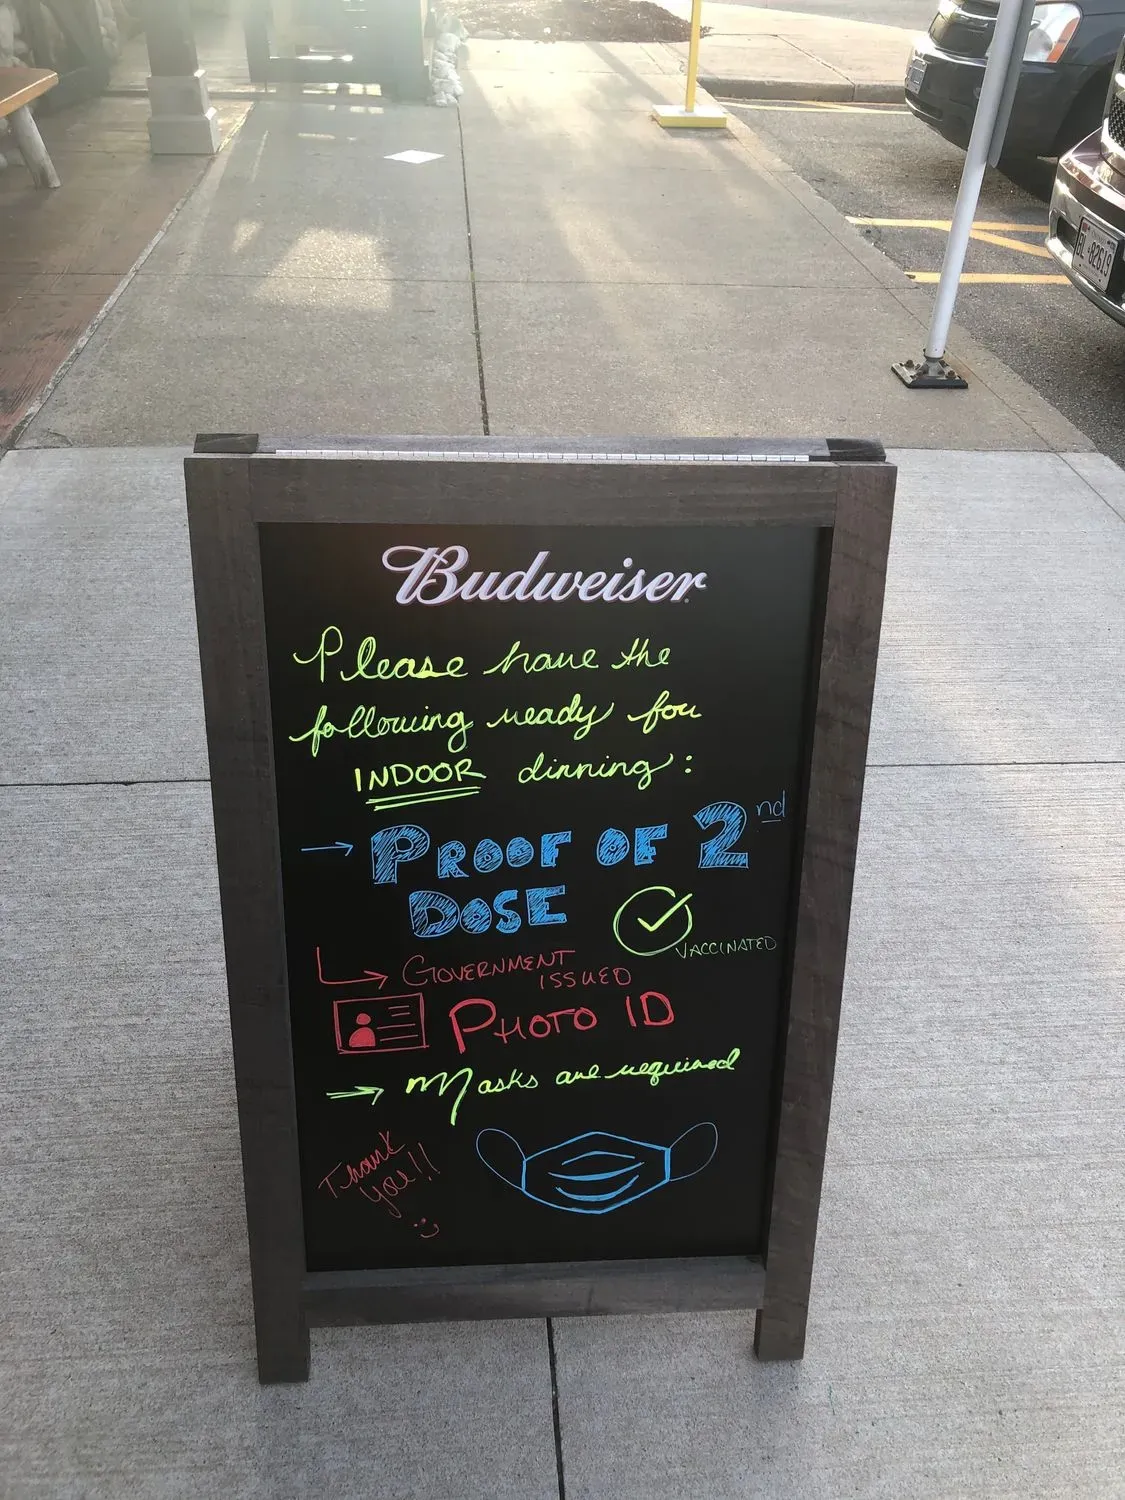 Budweiser
Please have the
following ready for
INDOOR dinning:
→ PROOF OF 2nd
DOSE
VACCINATED
GOVERNMENT
ISSUED
PHOTO ID
→ Masks are required
Thank
you!!